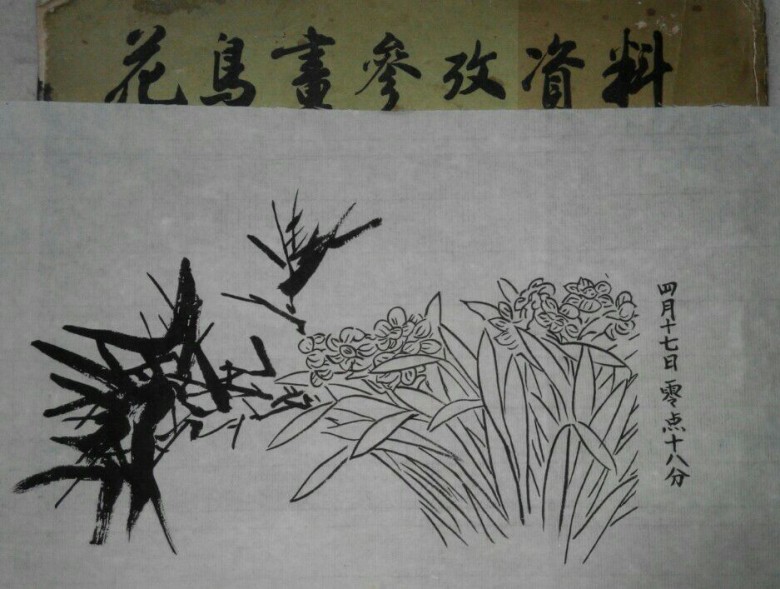 花鳥畫參攷資料
四月十七日零点十八分